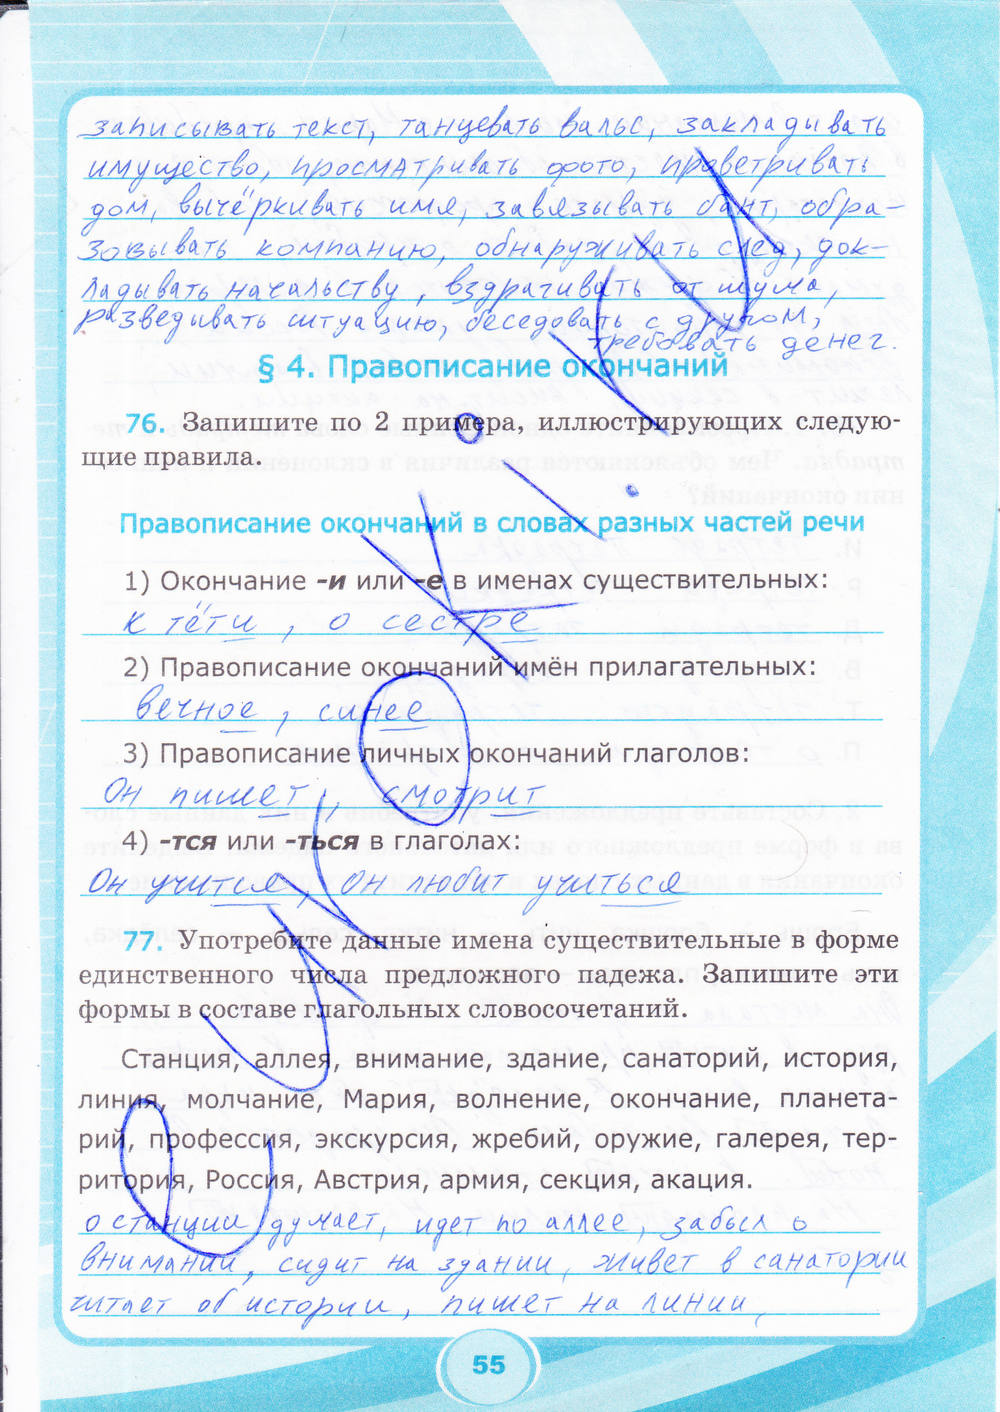 записывать текст, танцевать вальс, закладывать
имущество, просматривать фото, проветривать
дом, вычёркивать имя, завязывать бант, обра-
зовывать компанию, обнаруживать след, док-
ладывать начальству, вздрагивать от шума,
разведывать ситуацию, беседовать с другом,
требовать денег.
§ 4. Правописание окончаний
76. Запишите по 2 примера, иллюстрирующих следую-
щие правила.
Правописание окончаний в словах разных частей речи
1) Окончание -и или -е в именах существительных:
к тёти, о сестре
2) Правописание окончаний имён прилагательных:
вечное, синее
3) Правописание личных окончаний глаголов:
Он пишет, смотрит
4) -тся или -ться в глаголах:
Он учится, он любит учиться
77. Употребите данные имена существительные в форме
единственного числа предложного падежа. Запишите эти
формы в составе глагольных словосочетаний.
Станция, аллея, внимание, здание, санаторий, история,
линия, молчание, Мария, волнение, окончание, планета-
рий, профессия, экскурсия, жребий, оружие, галерея, тер-
ритория, Россия, Австрия, армия, секция, акация.
о станции думает, идет по аллее, забыл о
внимании, сидит на здании, живет в санатории
читает об истории, пишет на линии,
55